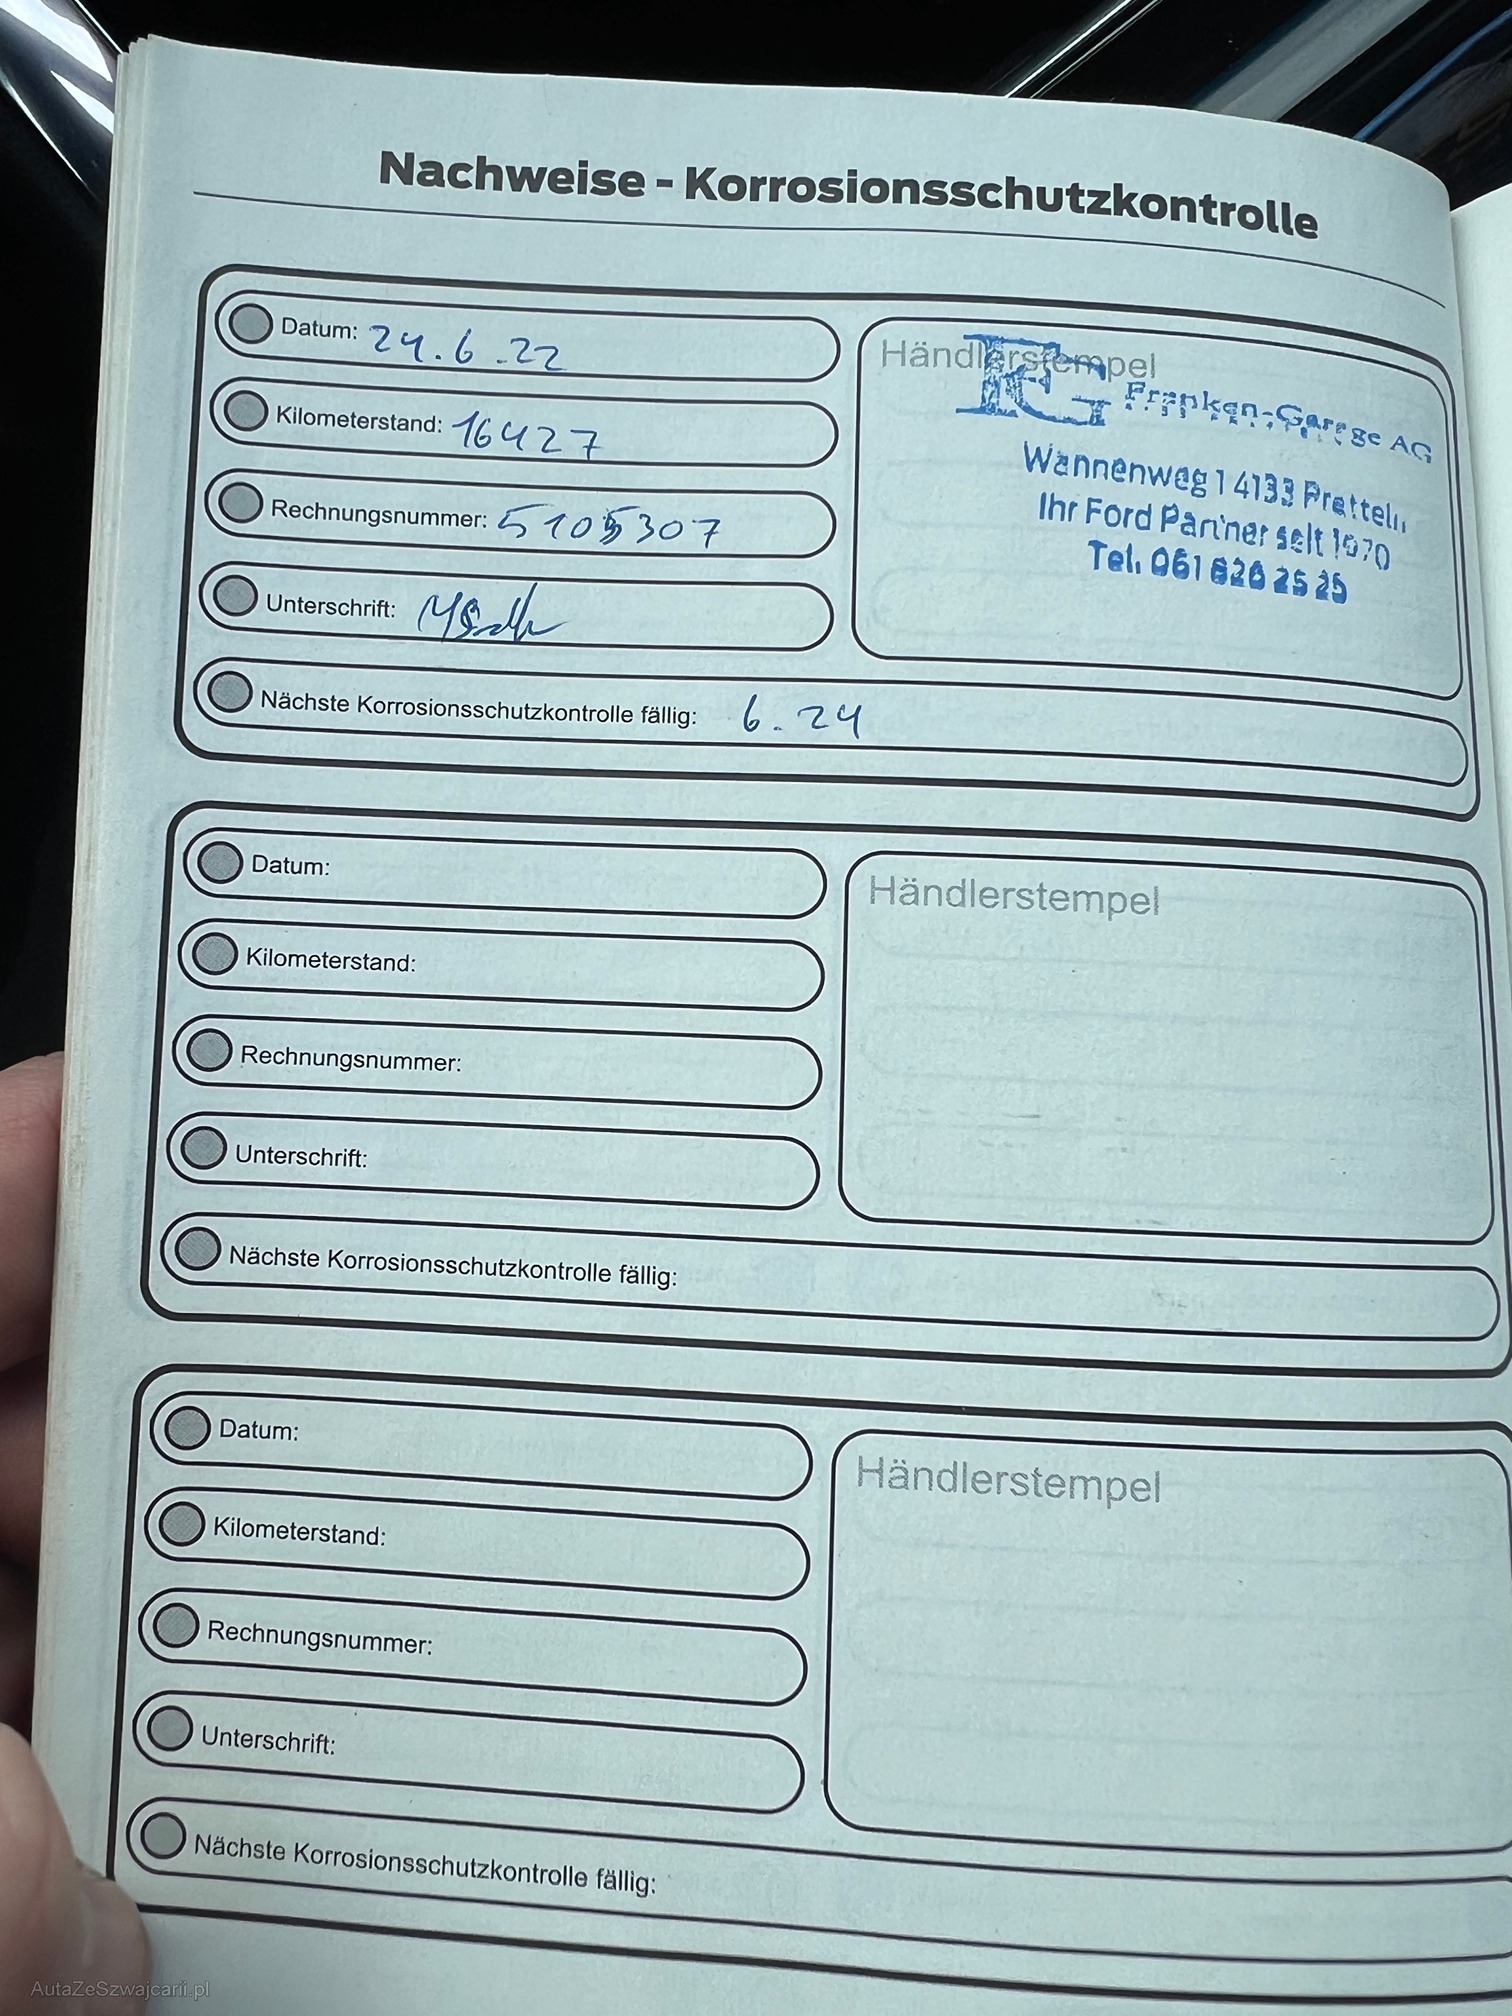 Nachweise - Korrosionsschutzkontrolle
Datum: 24.6.22
Kilometerstand: 16427
Rechnungsnummer: 5105307
Unterschrift:
Nächste Korrosionsschutzkontrolle fällig: 6.24
Händlerstempel
FG Franken-Garage AG
Wannenweg 1 4133 Pratteln
Ihr Ford Partner seit 1970
Tel. 061 826 25 25
Datum:
Kilometerstand:
Rechnungsnummer:
Unterschrift:
Nächste Korrosionsschutzkontrolle fällig:
Händlerstempel
Datum:
Kilometerstand:
Rechnungsnummer:
Unterschrift:
Nächste Korrosionsschutzkontrolle fällig:
Händlerstempel
AutaZeSzwajcarii.pl